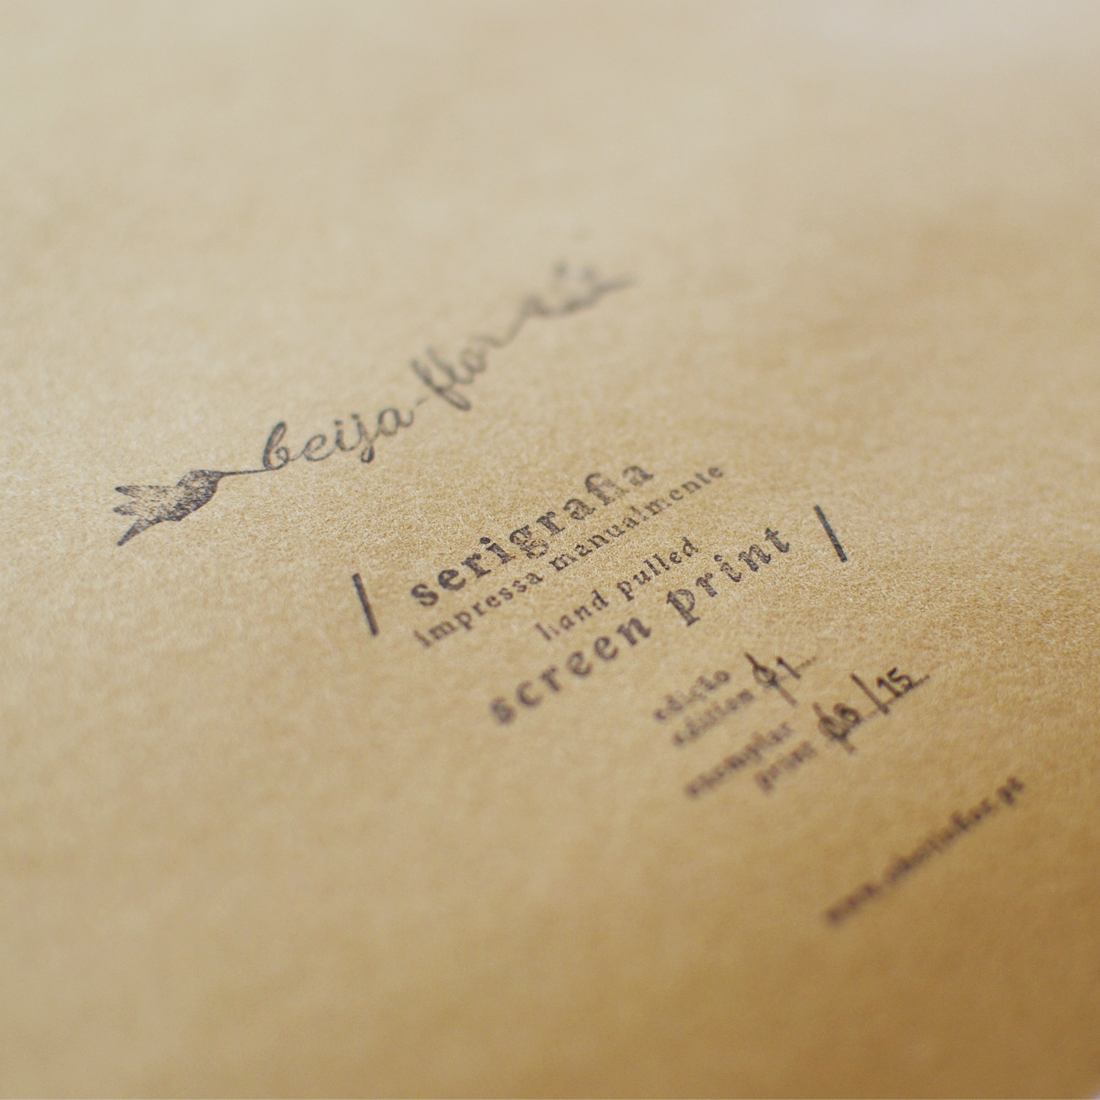 beija-flor
/ serigrafia /
impressa manualmente
hand pulled
screen print
edição
edition 01
exemplar
print 06/15